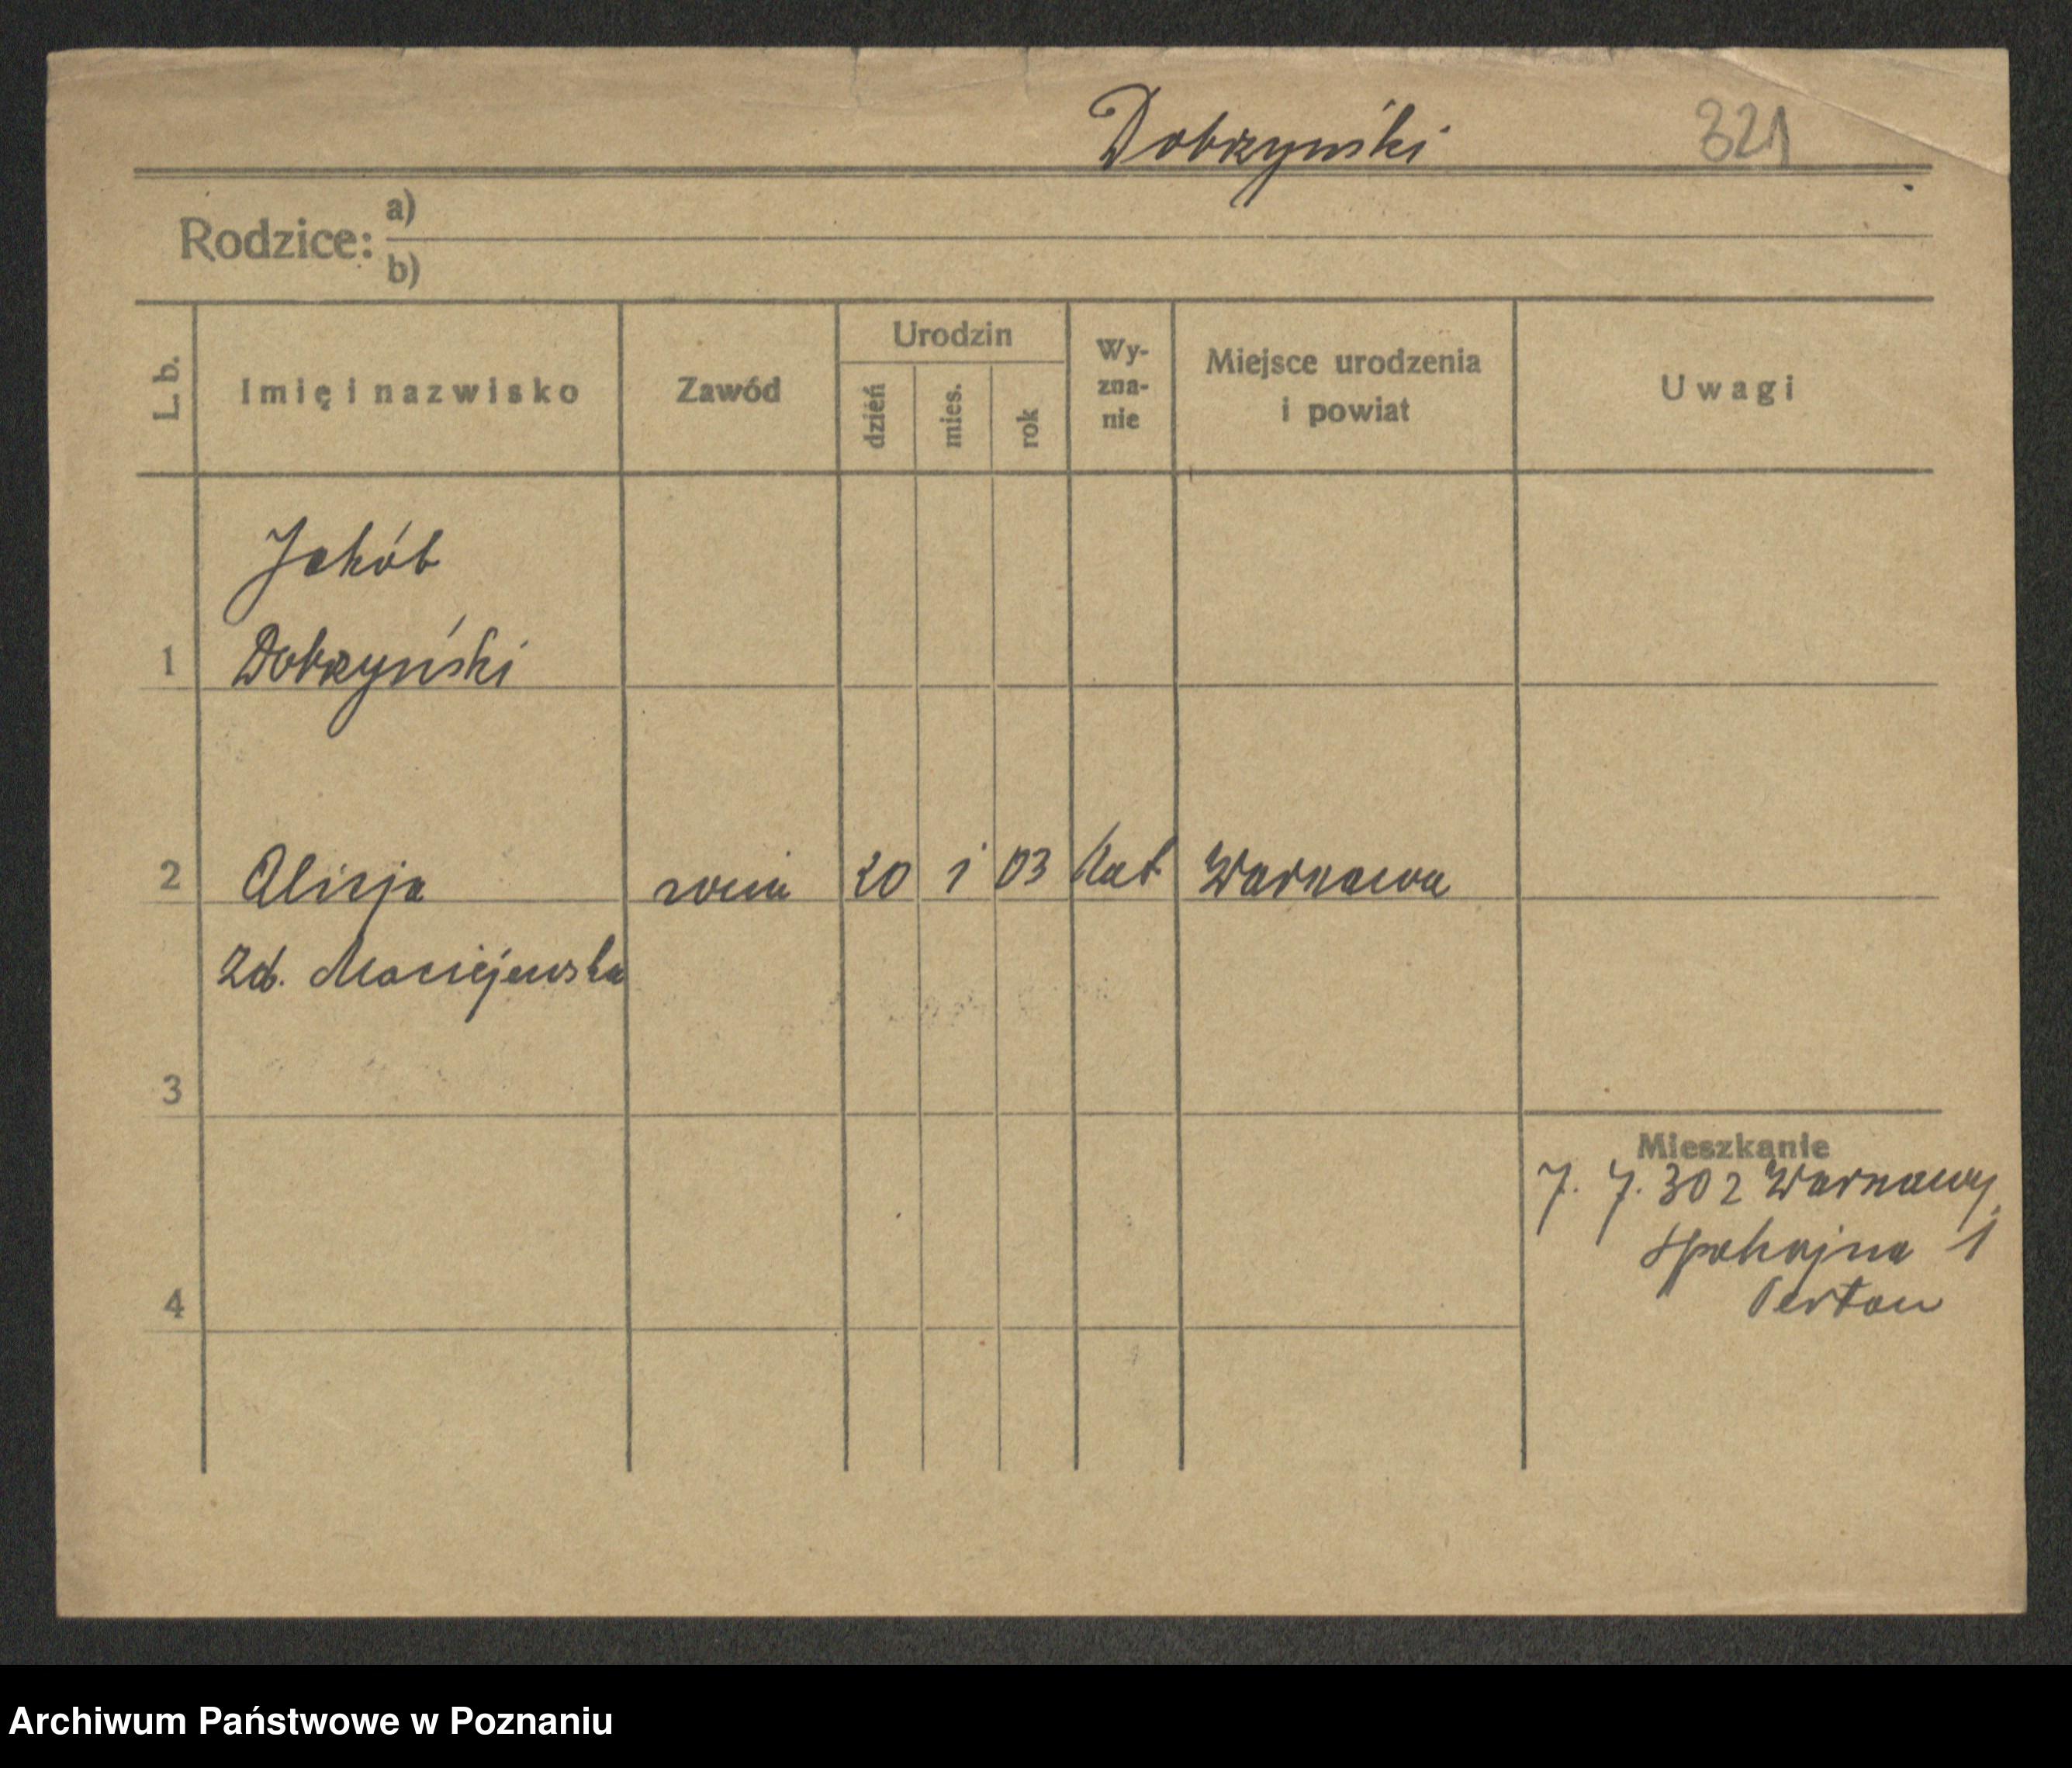 Dobrzyński 321
Rodzice: a)
b)
L. b. Imię i nazwisko Zawód Urodzin dzień mies. rok Wy-zna-nie Miejsce urodzenia i powiat Uwagi
Jakób
1 Dobrzyński
2 Alicja żona 20 1 03 kat Warszawa
Zd. Maciejewska
3
Mieszkanie
7. 7. 30 z Warszawy,
Spokojna 1
4
Archiwum Państwowe w Poznaniu